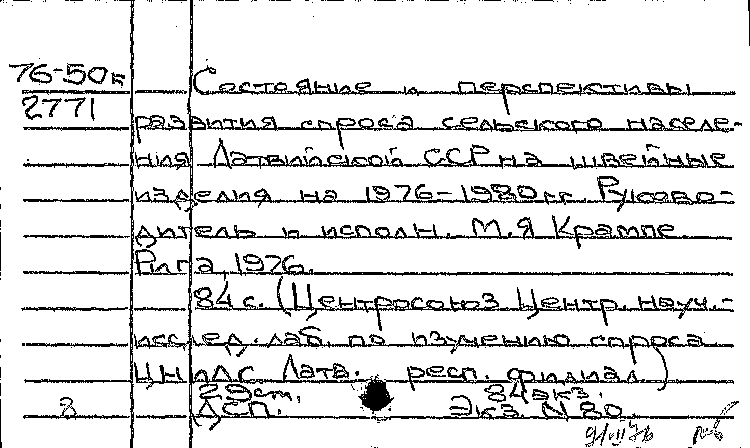 76-50к Состояние и перспективы
2771
развития спроса сельского населе-
ния Латвийской ССР на швейные
изделия на 1976-1980 гг. Руково-
дитель и исполн. М.Я Крампе.
Рига, 1976.
84 с. (Центросоюз Центр. науч.-
исслед. лаб. по изучению спроса
ЦНИЛС Латв. респ. филиал)
29 ст. 84 экз.
8 ДСП. Экз. N 80